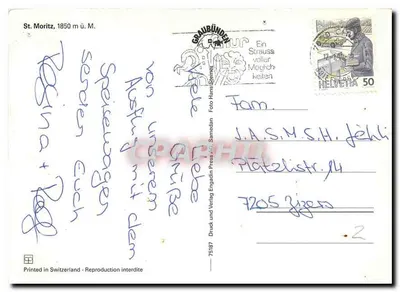 St. Moritz, 1850 m ü. M.
GRAUBÜNDEN
Chur
Ein
Strauss
voller
Möglich-
keiten
HELVETIA 50
Viele liebe
Grüße
von unserem
Ausflug mit dem
Speisewagen
senden Euch
Regina + Ralf
Fam.
J.A.S.M.S.H.
14
7205 Zizers
2
75187 Druck und Verlag Engadin Press AG, Samedan Foto Hans
Printed in Switzerland - Reproduction interdite